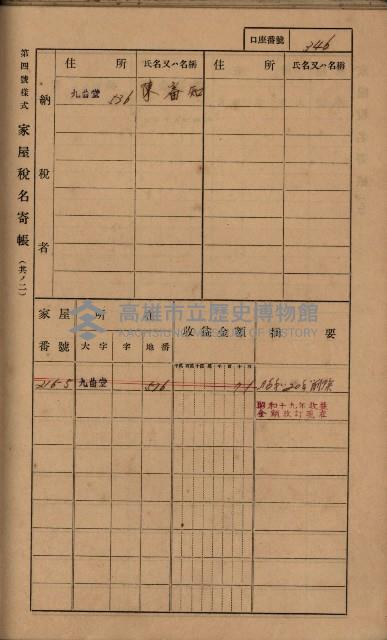 口座番號 346
第四號樣式 家屋稅名寄帳（其ノ二）
納稅者
住所 氏名又ハ名稱 住所 氏名又ハ名稱
九曲堂 536 陳番知
家屋所在 收益金額 摘要
番號 大字 字 地番
九曲堂 536
昭和十九年收益
金額改訂現在
高雄市立歷史博物館
KAOHSIUNG MUSEUM OF HISTORY